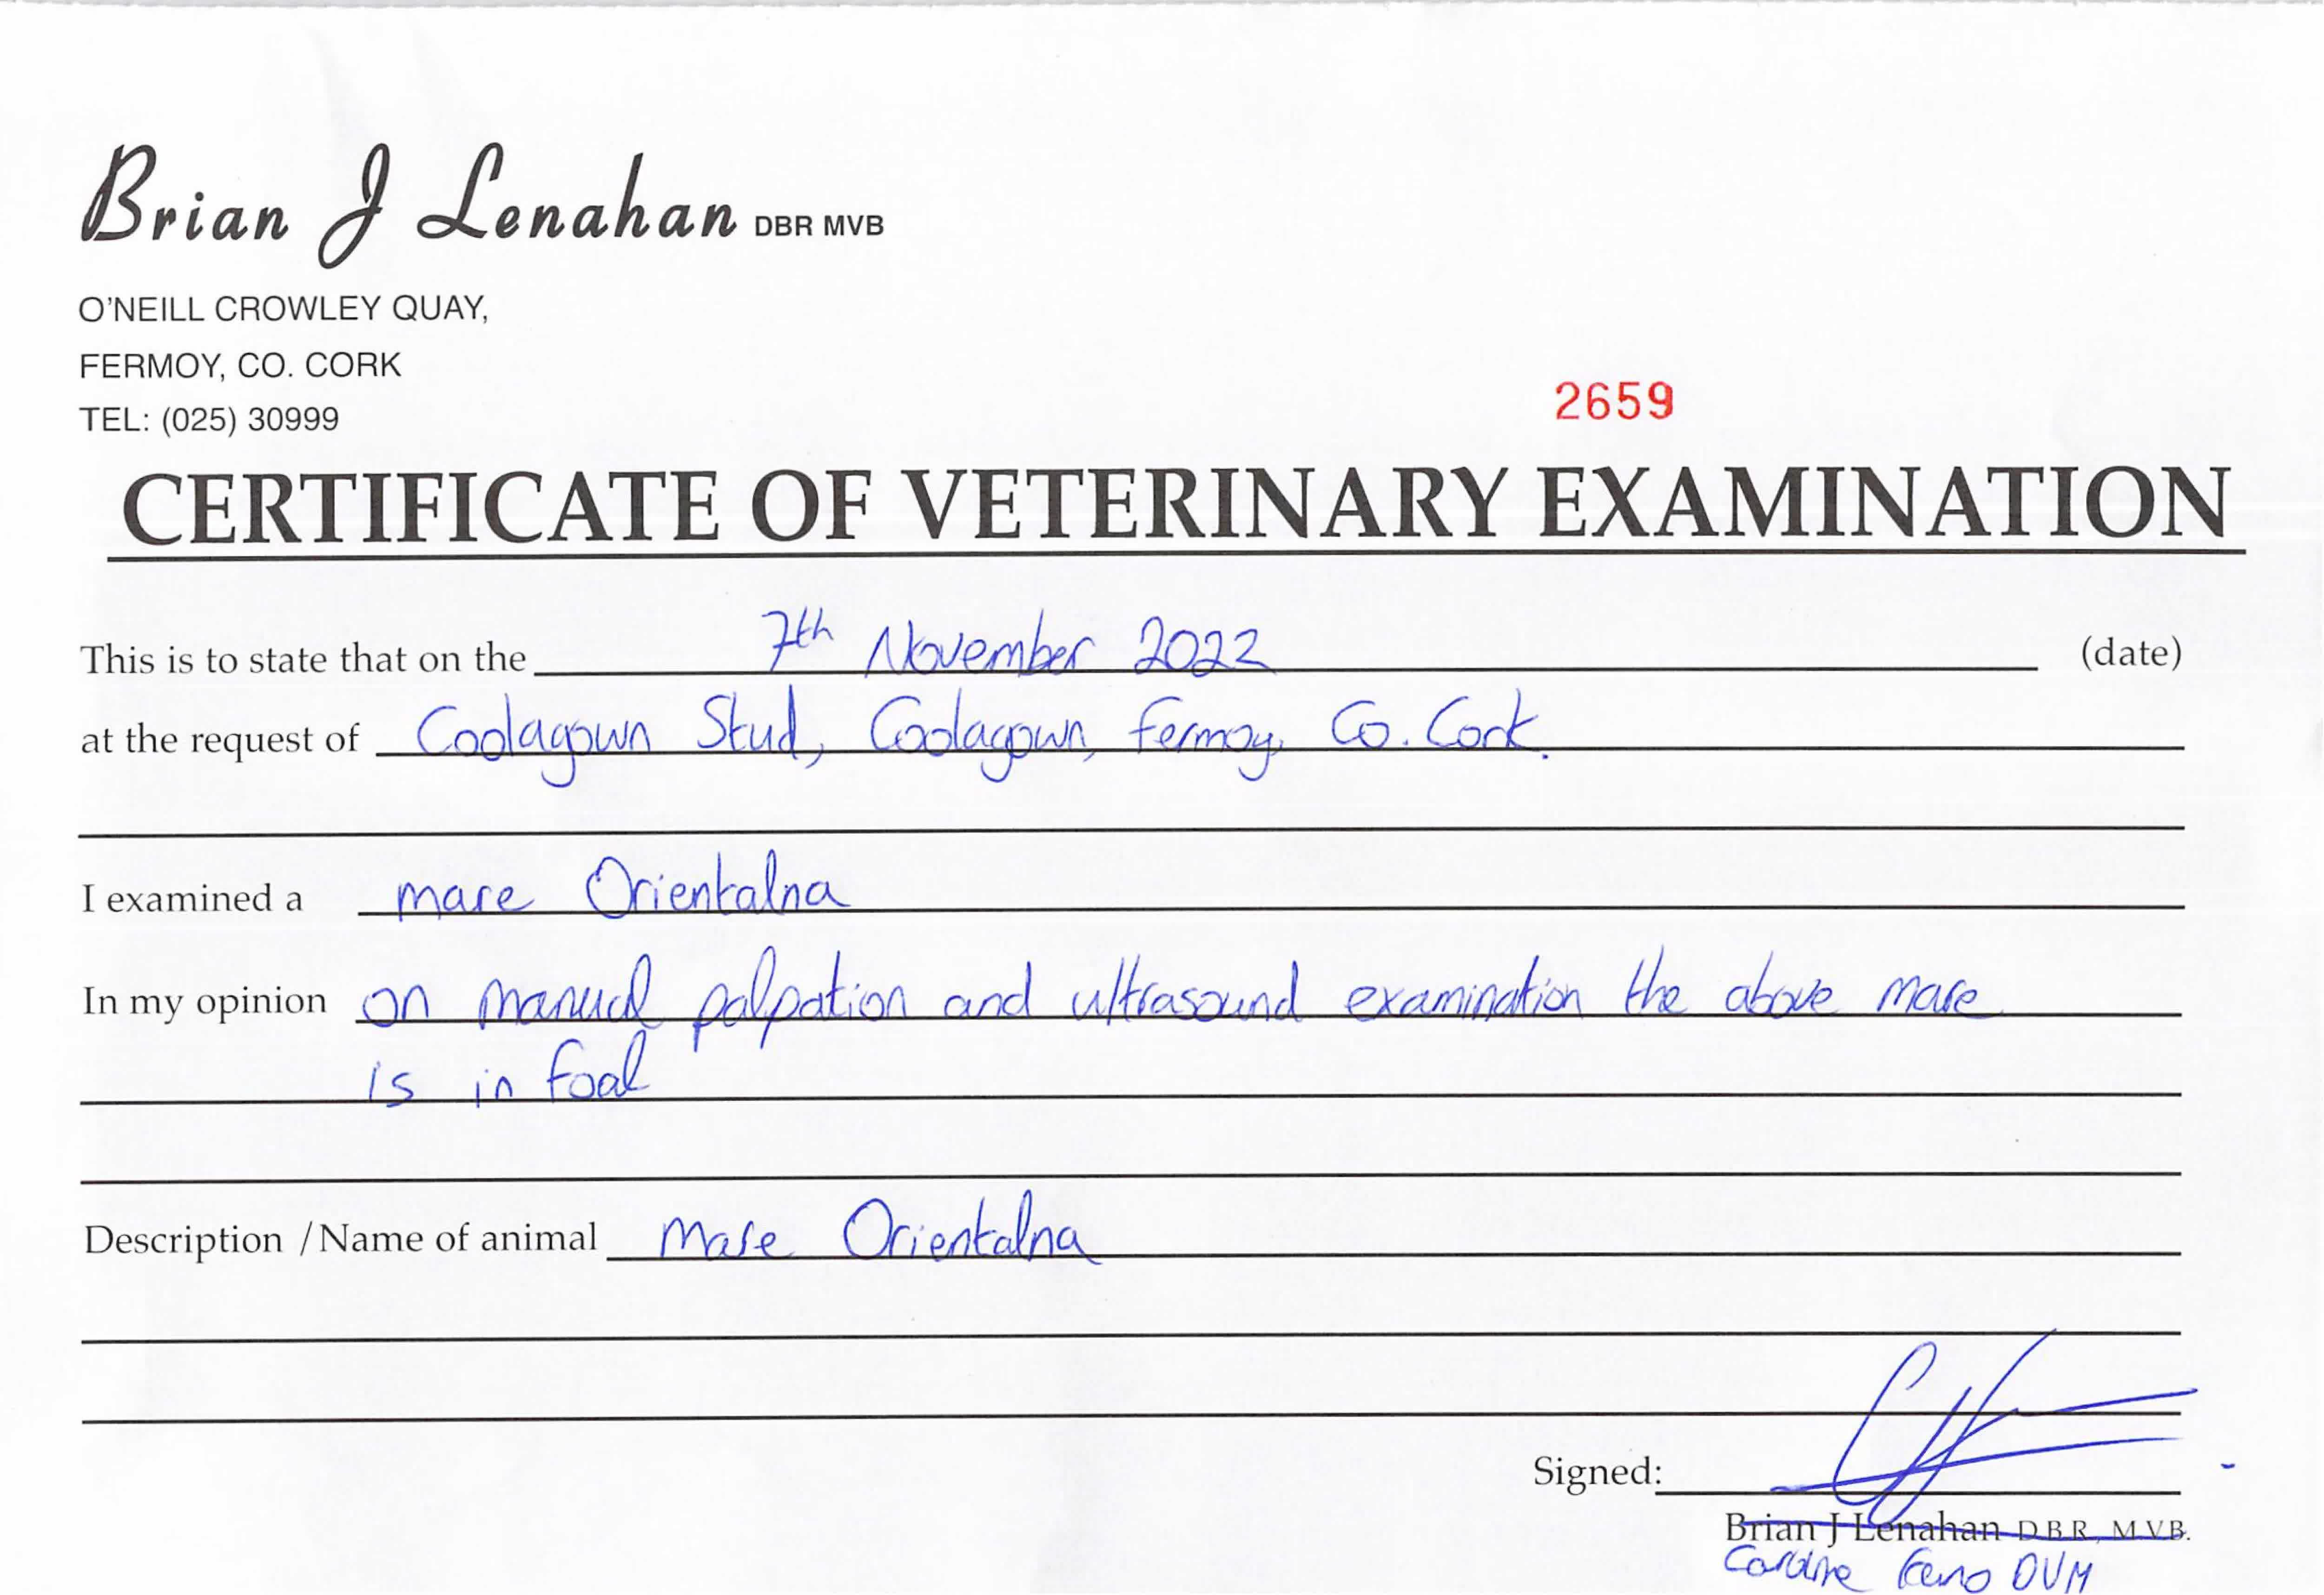 Brian J Lenahan DBR MVB
O'NEILL CROWLEY QUAY,
FERMOY, CO. CORK
TEL: (025) 30999
2659
CERTIFICATE OF VETERINARY EXAMINATION
This is to state that on the 7th November 2022 (date)
at the request of Coolagown Stud, Coolagown, Fermoy, Co. Cork.
I examined a mare Orientalna
In my opinion on manual palpation and ultrasound examination the above mare
is in foal
Description / Name of animal Mare Orientalna
Signed:
Brian J Lenahan D.B.R., M.V.B.
DVM